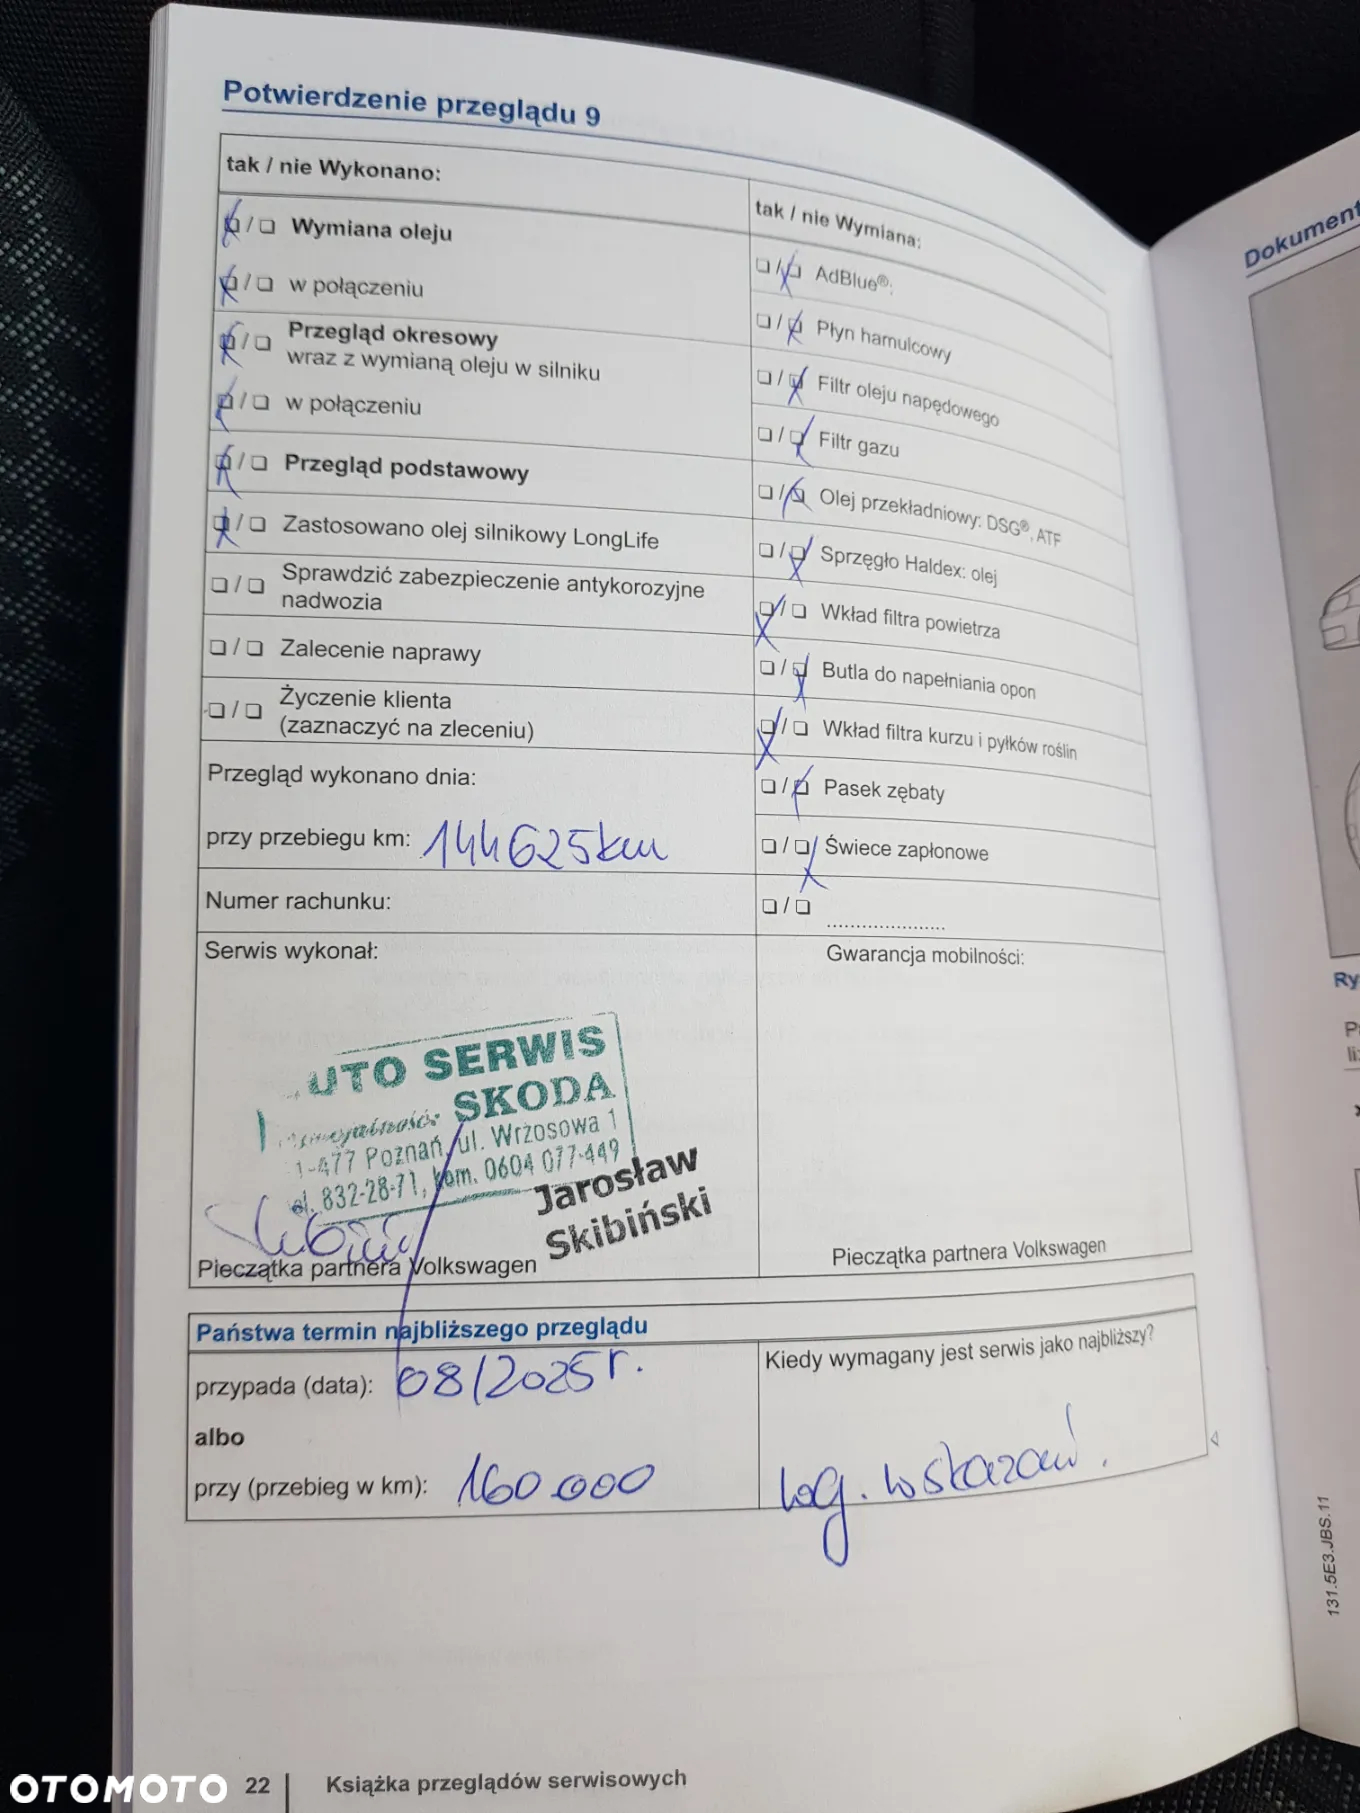 Potwierdzenie przeglądu 9
tak / nie Wykonano:
Wymiana oleju
w połączeniu
Przegląd okresowy
wraz z wymianą oleju w silniku
w połączeniu
Przegląd podstawowy
Zastosowano olej silnikowy LongLife
Sprawdzić zabezpieczenie antykorozyjne
nadwozia
Zalecenie naprawy
Życzenie klienta
(zaznaczyć na zleceniu)
Przegląd wykonano dnia:
przy przebiegu km: 144625km
Numer rachunku:
Serwis wykonał:
UTO SERWIS
SKODA
1-477 Poznań, ul. Wrzosowa 1
el. 832-28-71, kom. 0604 077-449
Jarosław
Skibiński
Pieczątka partnera Volkswagen
tak / nie Wymiana:
AdBlue®:
Płyn hamulcowy
Filtr oleju napędowego
Filtr gazu
Olej przekładniowy: DSG®, ATF
Sprzęgło Haldex: olej
Wkład filtra powietrza
Butla do napełniania opon
Wkład filtra kurzu i pyłków roślin
Pasek zębaty
Świece zapłonowe
.....................
Gwarancja mobilności:
Pieczątka partnera Volkswagen
Państwa termin najbliższego przeglądu
przypada (data): 08/2025 r.
albo
przy (przebieg w km): 160.000
Kiedy wymagany jest serwis jako najbliższy?
wg. wskazań.
22
Książka przeglądów serwisowych
Dokument
Ry
131.5E3.JBS.11
OTOMOTO